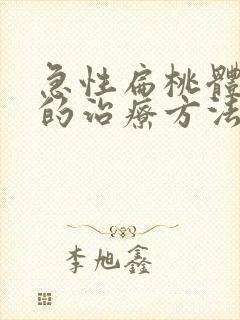 急性扁桃體
的治療方法
李旭鑫